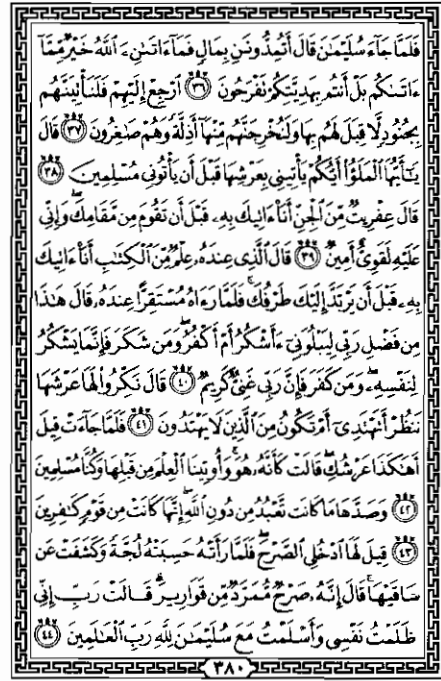 فَلَمَّا جَآءَ سُلَيۡمَٰنَ قَالَ أَتُمِدُّونَنِ بِمَالٖ فَمَآ ءَاتَىٰنِۦَ ٱللَّهُ خَيۡرٞ مِّمَّآ
ءَاتَىٰكُمۚ بَلۡ أَنتُم بِهَدِيَّتِكُمۡ تَفۡرَحُونَ ٣٦ ٱرۡجِعۡ إِلَيۡهِمۡ فَلَنَأۡتِيَنَّهُم
بِجُنُودٖ لَّا قِبَلَ لَهُم بِهَا وَلَنُخۡرِجَنَّهُم مِّنۡهَآ أَذِلَّةٗ وَهُمۡ صَٰغِرُونَ ٣٧ قَالَ
يَٰٓأَيُّهَا ٱلۡمَلَؤُاْ أَيُّكُمۡ يَأۡتِينِي بِعَرۡشِهَا قَبۡلَ أَن يَأۡتُونِي مُسۡلِمِينَ ٣٨
قَالَ عِفۡرِيتٞ مِّنَ ٱلۡجِنِّ أَنَا۠ ءَاتِيكَ بِهِۦ قَبۡلَ أَن تَقُومَ مِن مَّقَامِكَۖ وَإِنِّي
عَلَيۡهِ لَقَوِيٌّ أَمِينٞ ٣٩ قَالَ ٱلَّذِي عِندَهُۥ عِلۡمٞ مِّنَ ٱلۡكِتَٰبِ أَنَا۠ ءَاتِيكَ
بِهِۦ قَبۡلَ أَن يَرۡتَدَّ إِلَيۡكَ طَرۡفُكَۚ فَلَمَّا رَءَاهُ مُسۡتَقِرًّا عِندَهُۥ قَالَ هَٰذَا
مِن فَضۡلِ رَبِّي لِيَبۡلُوَنِيٓ ءَأَشۡكُرُ أَمۡ أَكۡفُرُۖ وَمَن شَكَرَ فَإِنَّمَا يَشۡكُرُ
لِنَفۡسِهِۦۖ وَمَن كَفَرَ فَإِنَّ رَبِّي غَنِيّٞ كَرِيمٞ ٤٠ قَالَ نَكِّرُواْ لَهَا عَرۡشَهَا
نَنظُرۡ أَتَهۡتَدِيٓ أَمۡ تَكُونُ مِنَ ٱلَّذِينَ لَا يَهۡتَدُونَ ٤١ فَلَمَّا جَآءَتۡ قِيلَ
أَهَٰكَذَا عَرۡشُكِۖ قَالَتۡ كَأَنَّهُۥ هُوَۚ وَأُوتِينَا ٱلۡعِلۡمَ مِن قَبۡلِهَا وَكُنَّا مُسۡلِمِينَ
٤٢ وَصَدَّهَا مَا كَانَت تَّعۡبُدُ مِن دُونِ ٱللَّهِۖ إِنَّهَا كَانَتۡ مِن قَوۡمٖ كَٰفِرِينَ
٤٣ قِيلَ لَهَا ٱدۡخُلِي ٱلصَّرۡحَۖ فَلَمَّا رَأَتۡهُ حَسِبَتۡهُ لُجَّةٗ وَكَشَفَتۡ عَن
سَاقَيۡهَاۚ قَالَ إِنَّهُۥ صَرۡحٞ مُّمَرَّدٞ مِّن قَوَارِيرَۗ قَالَتۡ رَبِّ إِنِّي
ظَلَمۡتُ نَفۡسِي وَأَسۡلَمۡتُ مَعَ سُلَيۡمَٰنَ لِلَّهِ رَبِّ ٱلۡعَٰلَمِينَ ٤٤
٣٨٠